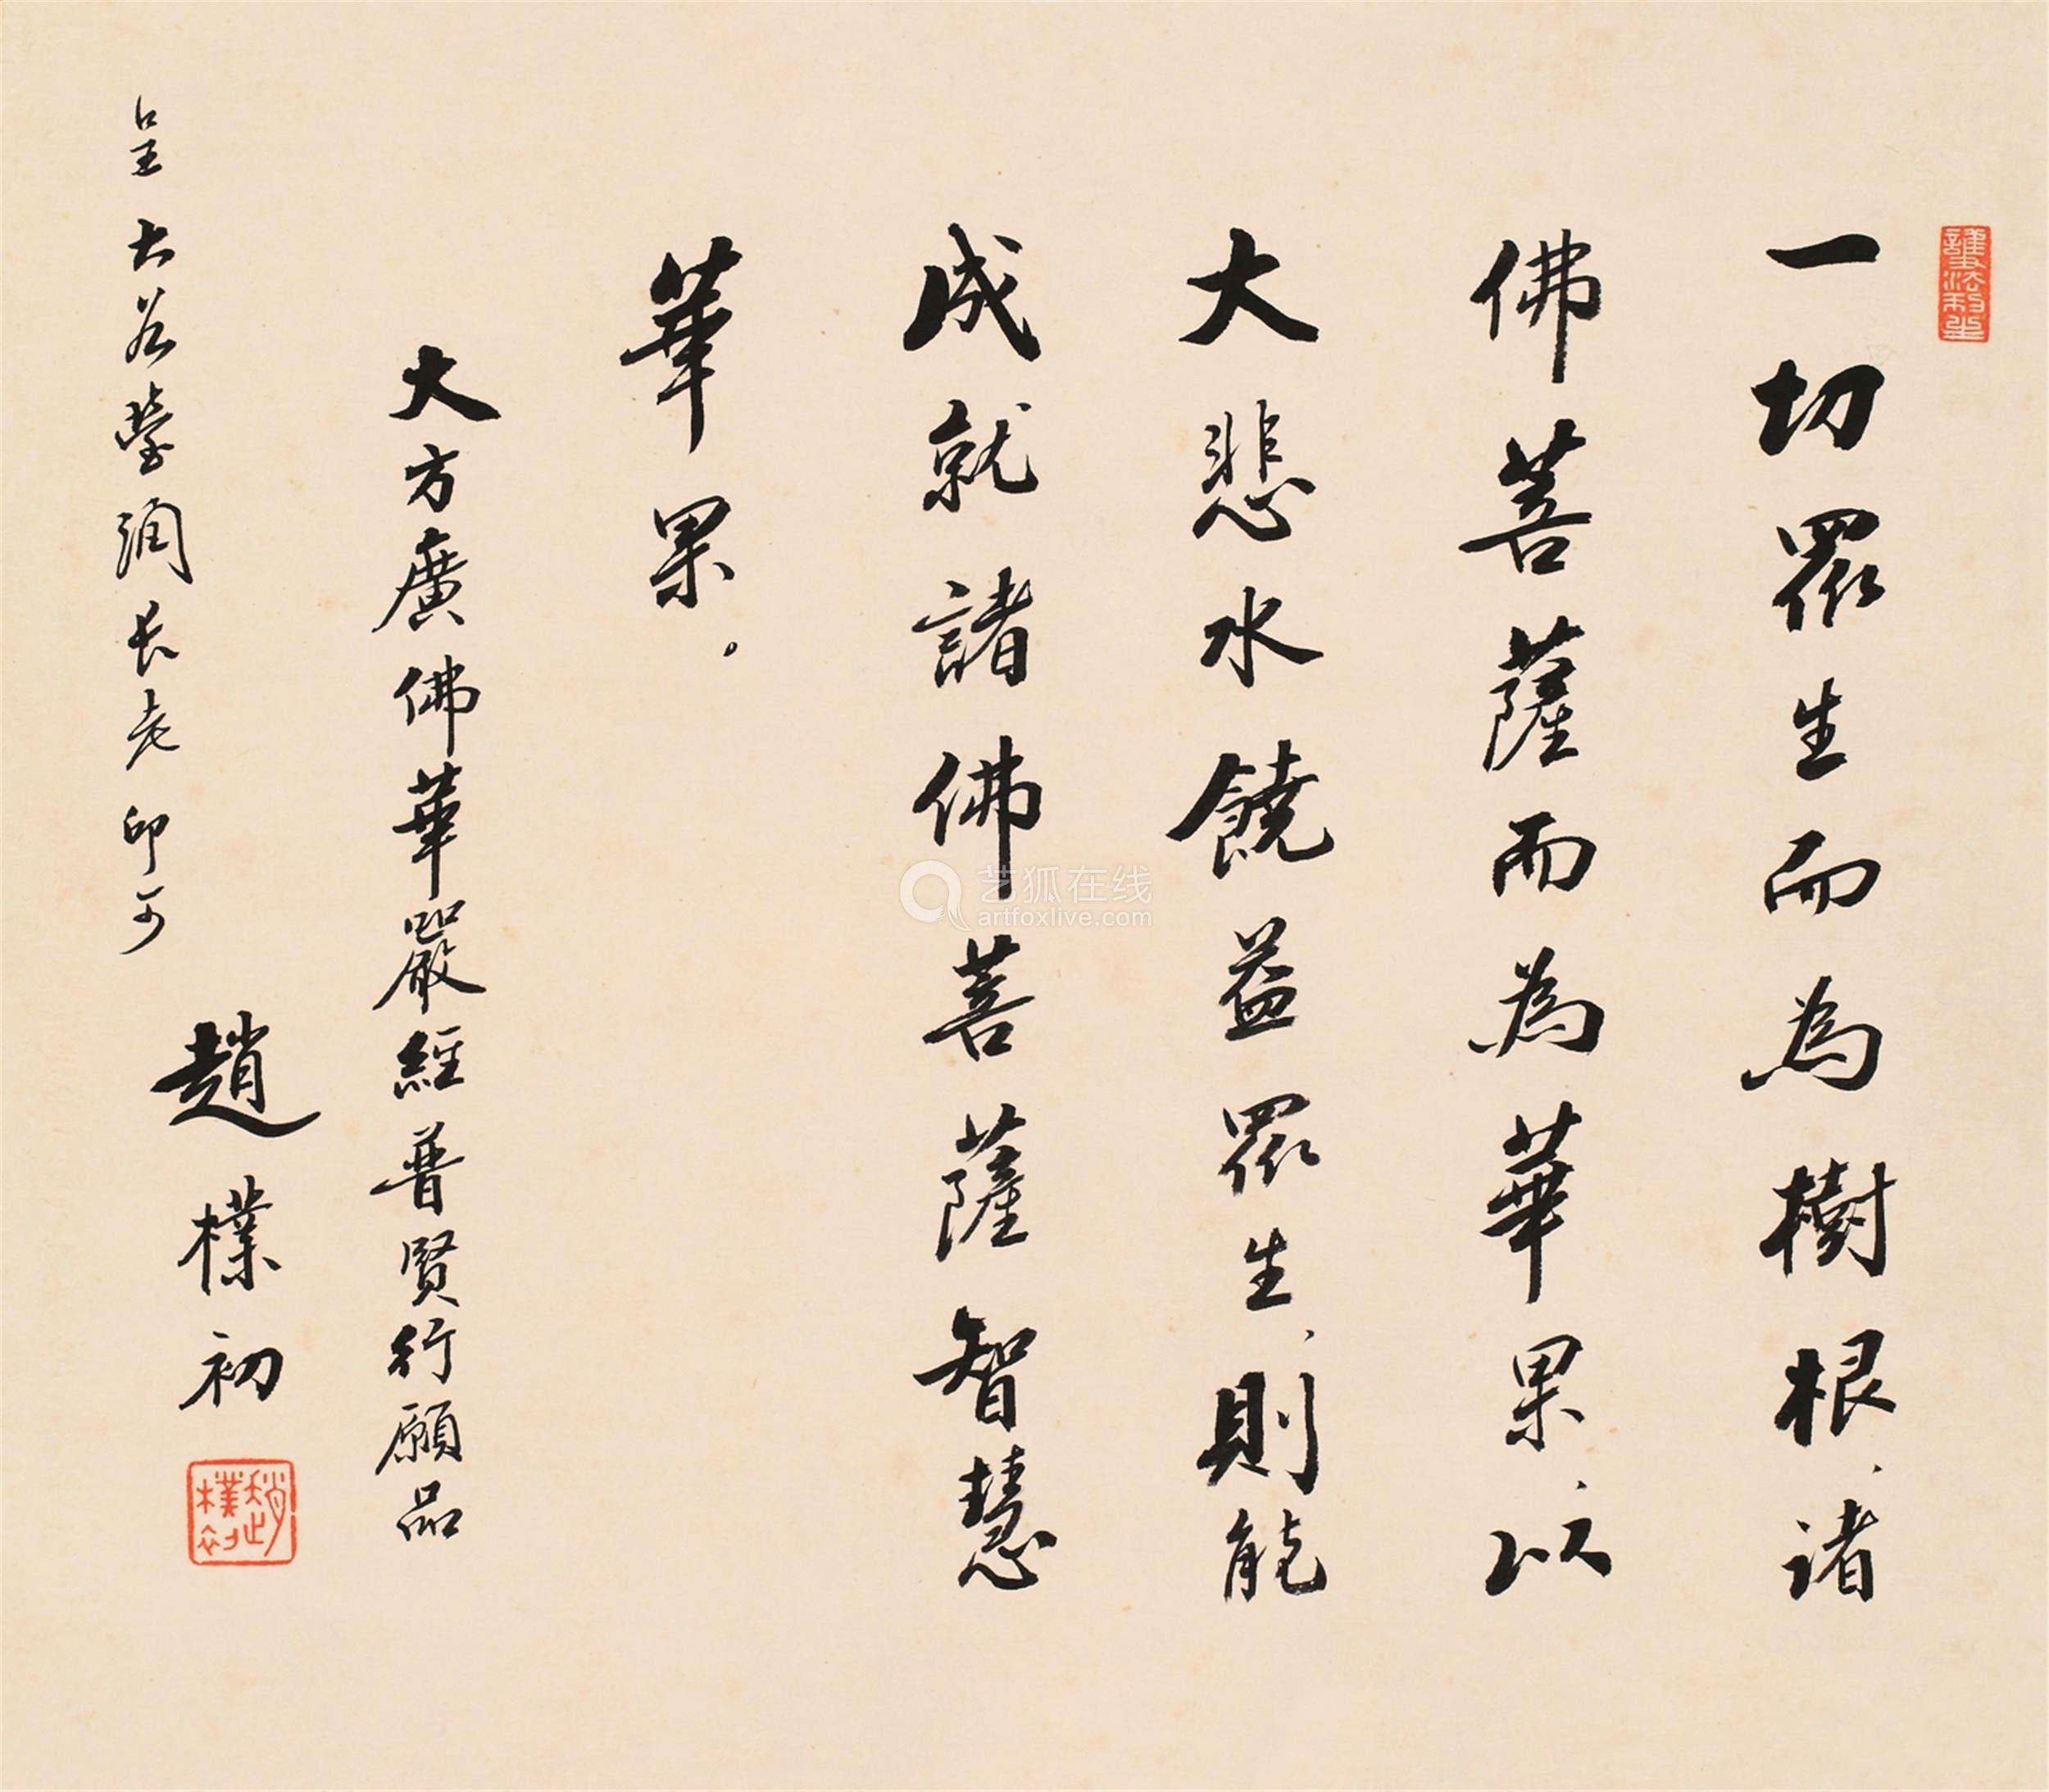 一切眾生而為樹根、诸
佛菩薩而為華果、以
大悲水饒益眾生、則能
成就諸佛菩薩智慧
華果。
大方廣佛華嚴經普賢行願品
呈大谷瑩潤长老印可
趙樸初
趙樸初
護法利生
艺狐在线
artfoxlive.com